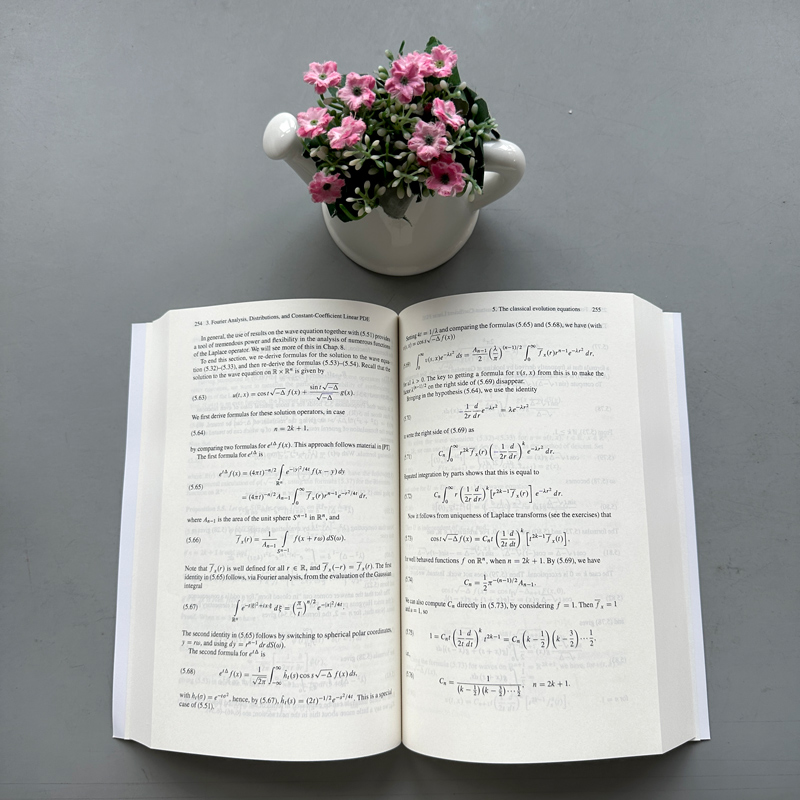 254 3. Fourier Analysis, Distributions, and Constant-Coefficient Linear PDE
In general, the use of results on the wave equation together with (5.51) provides
a tool of tremendous power and flexibility in the analysis of numerous functions
of the Laplace operator. We will see more of this in Chap. 8.
To end this section, we re-derive formulas for the solution to the wave equa-
tion (5.32)–(5.33), and then re-derive the formulas (5.53)–(5.54). Recall that the
solution to the wave equation on ℝ × ℝⁿ is given by
(5.63) u(t, x) = cos t√−Δ f(x) + (sin t√−Δ)/(√−Δ) g(x).
We first derive formulas for these solution operators, in case
(5.64) n = 2k + 1,
by comparing two formulas for e^{tΔ} f(x). This approach follows material in [PT].
The first formula for e^{tΔ} is
e^{tΔ} f(x) = (4πt)^{−n/2} ∫_{ℝⁿ} e^{−|y|²/4t} f(x − y) dy
(5.65)
= (4πt)^{−n/2} A_{n−1} ∫_0^∞ f̄_x(r) r^{n−1} e^{−r²/4t} dr,
where A_{n−1} is the area of the unit sphere S^{n−1} in ℝⁿ, and
(5.66) f̄_x(r) = 1/A_{n−1} ∫_{S^{n−1}} f(x + rω) dS(ω).
Note that f̄_x(r) is well defined for all r ∈ ℝ, and f̄_x(−r) = f̄_x(r). The first
identity in (5.65) follows, via Fourier analysis, from the evaluation of the Gaussian
integral
(5.67) ∫_{ℝⁿ} e^{−t|ξ|²+ix·ξ} dξ = (π/t)^{n/2} e^{−|x|²/4t}.
The second identity in (5.65) follows by switching to spherical polar coordinates,
y = rω, and using dy = r^{n−1} dr dS(ω).
The second formula for e^{tΔ} is
(5.68) e^{tΔ} f(x) = 1/√2π ∫_{−∞}^∞ ĥ_t(s) cos s√−Δ f(x) ds,
with h_t(σ) = e^{−tσ²}, hence, by (5.67), ĥ_t(s) = (2t)^{−1/2} e^{−s²/4t}. This is a special
case of (5.51).
5. The classical evolution equations 255
4t = 1/λ and comparing the formulas (5.65) and (5.68), we have (with
= cos s√−Δ f(x))
∫_0^∞ v(s, x)e^{−λs²} ds = A_{n−1}/2 (λ/π)^{(n−1)/2} ∫_0^∞ f̄_x(r) r^{n−1} e^{−λr²} dr,
λ > 0. The key to getting a formula for v(s, x) from this is to make the
on the right side of (5.69) disappear.
Bringing in the hypothesis (5.64), we use the identity
−1/2r d/dr e^{−λr²} = λe^{−λr²}
write the right side of (5.69) as
C_n ∫_0^∞ r^{2k} f̄_x(r) (−1/2r d/dr)^k e^{−λr²} dr.
Repeated integration by parts shows that this is equal to
C_n ∫_0^∞ r (1/2r d/dr)^k [r^{2k−1} f̄_x(r)] e^{−λr²} dr.
Now it follows from uniqueness of Laplace transforms (see the exercises) that
cos t√−Δ f(x) = C_n t (1/2t d/dt)^k [t^{2k−1} f̄_x(t)],
well behaved functions f on ℝⁿ, when n = 2k + 1. By (5.69), we have
C_n = 1/2 π^{−(n−1)/2} A_{n−1}.
We can also compute C_n directly in (5.73), by considering f = 1. Then f̄_x = 1
and u = 1, so
1 = C_n t (1/2t d/dt)^k t^{2k−1} = C_n (k − 1/2)(k − 3/2) ⋯ 1/2,
C_n = 1/((k − 1/2)(k − 3/2) ⋯ 1/2), n = 2k + 1.